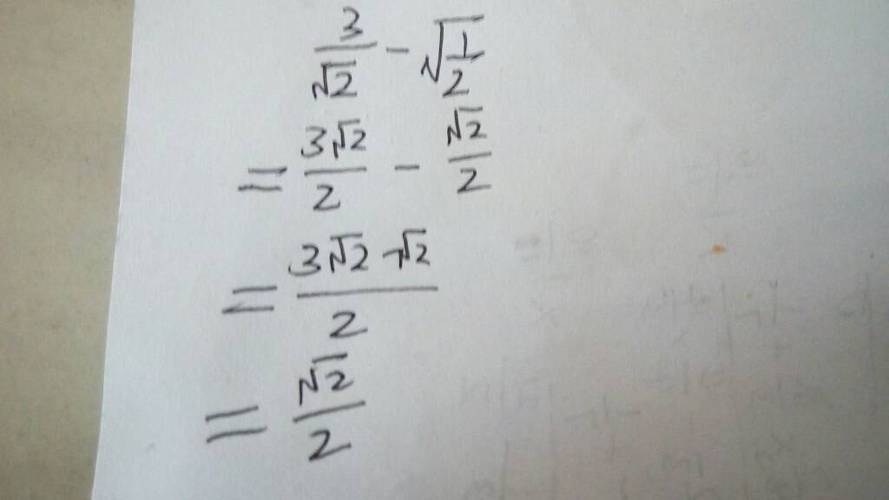 3/√2 - √(1/2)
= 3√2/2 - √2/2
= (3√2 - √2)/2
= √2/2